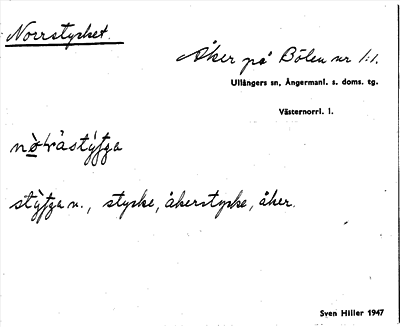 Norrstycket.
Åker på Bölen nr 1:1.
Ullångers sn, Ångermanl. s. doms. tg.
Västernorrl. l.
stycke, åkerstycke, åker.
Sven Hiller 1947